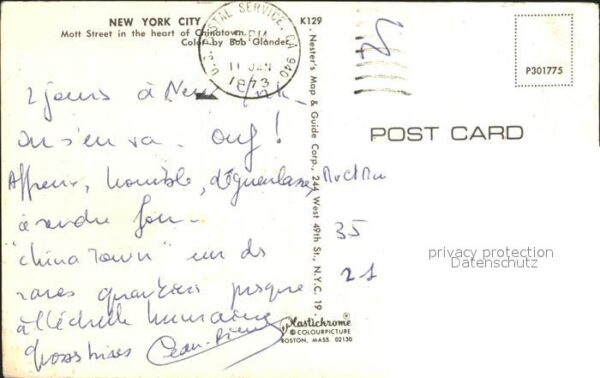 NEW YORK CITY
Mott Street in the heart of Chinatown.
Color by Bob Glander
K129
U.S. POSTAL SERVICE, CA 940
PM
11 JAN
1973
P301775
POST CARD
2 jours à New York
On s'en va - Ouf!
Affreux, horrible, dégueulasse,
à rendre fou -
"China Town" un des
rares quartiers presque
à l'échelle humaine
Grosses bises Jean-Pierre
35
21
Nester's Map & Guide Corp., 244 West 49th St., N.Y.C. 19.
Plastichrome ®
© COLOURPICTURE
BOSTON, MASS. 02130
privacy protection
Datenschutz